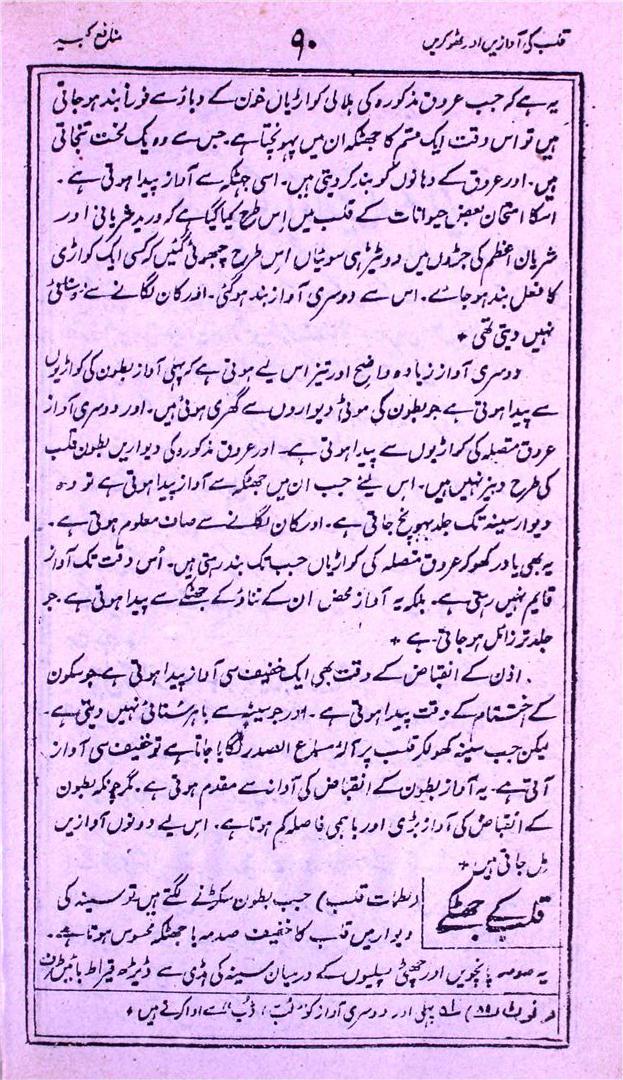 قلب کی آوازیں اور ٹھوکریں ۹۰ منافع کبیر
یہ ہے کہ جب عروق مذکورہ کی ہلالی کواڑیاں خون کے دباؤ سے فوراً بند ہو جاتی
ہیں تو اس وقت ایک قسم کا جھٹکہ ان میں پہونچتا ہے۔ جس سے وہ یک لخت تنجاتی
ہیں۔ اور عروق کے دہانوں کو بند کر دیتی ہیں۔ اسی جھٹکہ سے آواز پیدا ہوتی ہے۔
اسکا امتحان بعض حیوانات کے قلب میں اس طرح کیا گیا ہے کہ ورید شریانی اور
شریان اعظم کی جڑوں میں دو ٹیڑہی سوئیاں اس طرح چبھوئی گئیں کہ کسی ایک کواڑی
کا فعل بند ہو جائے۔ اس سے دوسری آواز بند ہو گئی۔ اور کان لگانے سے سنائی
نہیں دیتی تھی +
دوسری آواز زیادہ واضح اور تیز اس لیے ہوتی ہے کہ پہلی آواز بطون کی کواڑیوں
سے پیدا ہوتی ہے جو بطون کی موٹی دیواروں سے گھری ہوئی ہیں۔ اور دوسری آواز
عروق متصلہ کی کواڑیوں سے پیدا ہوتی ہے۔ اور عروق مذکورہ کی دیواریں بطون قلب
کی طرح دبیز نہیں ہیں۔ اس لئے جب ان میں جھٹکہ سے آواز پیدا ہوتی ہے تو وہ
دیوار سینہ تک جلد پہونچ جاتی ہے۔ اور کان لگانے سے صاف معلوم ہوتی ہے۔
یہ بھی یاد رکھو کہ عروق متصلہ کی کواڑیاں جب تک بند رہتی ہیں۔ اُس وقت تک آواز
قایم نہیں رہتی ہے۔ بلکہ یہ آواز محض ان کے تناؤ کے جھٹکے سے پیدا ہوتی ہے۔ جو
جلد تر زائل ہو جاتی ہے +
اذن کے انقباض کے وقت بھی ایک خفیف سی آواز پیدا ہوتی ہے جو سکون
کے اختتام کے وقت پیدا ہوتی ہے۔ اور جو سینہ سے باہر سُنائی نہیں دیتی ہے۔
لیکن جب سینہ کھولکر قلب پر آلہ مسماع الصدر لگایا جاتا ہے تو خفیف سی آواز
آتی ہے۔ یہ آواز بطون کے انقباض کی آواز سے مقدم ہوتی ہے۔ مگر چونکہ بطون
کے انقباض کی آواز بڑی اور باہمی فاصلہ کم ہوتا ہے۔ اس لیے دونوں آوازیں
مل جاتی ہیں +
قلب کے جھٹکے (لطمات قلب) جب بطون سکڑنے لگتے ہیں تو سینہ کی
دیوار میں قلب کا خفیف صدمہ یا جھٹکہ محسوس ہوتا ہے۔
یہ صدمہ پانچویں اور چھٹی پسلیوں کے درمیان سینہ کی ہڈی سے ڈیڑھ قیراط بائیں طرف
فوٹ پہلی اور دوسری آواز کو لب، ڈپ سے ادا کرتے ہیں +